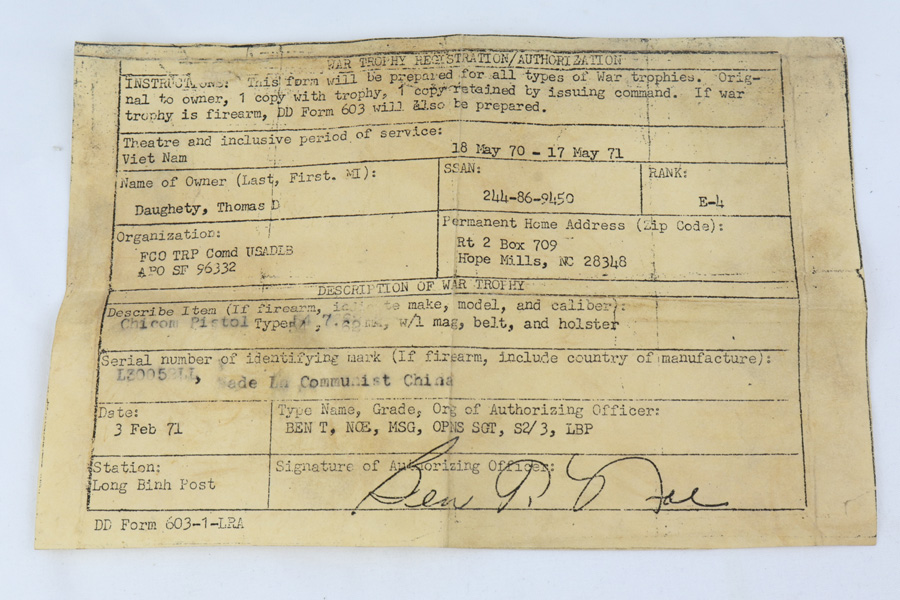 WAR TROPHY REGISTRATION/AUTHORIZATION
INSTRUCTIONS: This form will be prepared for all types of War trophies. Orig-
nal to owner, 1 copy with trophy, 1 copy retained by issuing command. If war
trophy is firearm, DD Form 603 will also be prepared.
Theatre and inclusive period of service:
Viet Nam
18 May 70 - 17 May 71
Name of Owner (Last, First. MI):
Daughety, Thomas D
SSAN:
244-86-9450
RANK:
E-4
Organization:
FCO TRP Comd USADLB
APO SF 96332
Permanent Home Address (Zip Code):
Rt 2 Box 709
Hope Mills, NC 28348
DESCRIPTION OF WAR TROPHY
Describe Item (If firearm, make, model, and caliber):
Chicom Pistol Type w/1 mag, belt, and holster
Serial number of identifying mark (If firearm, include country of manufacture):
Made In Communist China
Date:
3 Feb 71
Type Name, Grade, Org of Authorizing Officer:
BEN T. NOE, MSG, OPNS SGT, S2/3, LBP
Station:
Long Binh Post
Signature of Authorizing Officer:
Ben T. Noe
DD Form 603-1-LRA